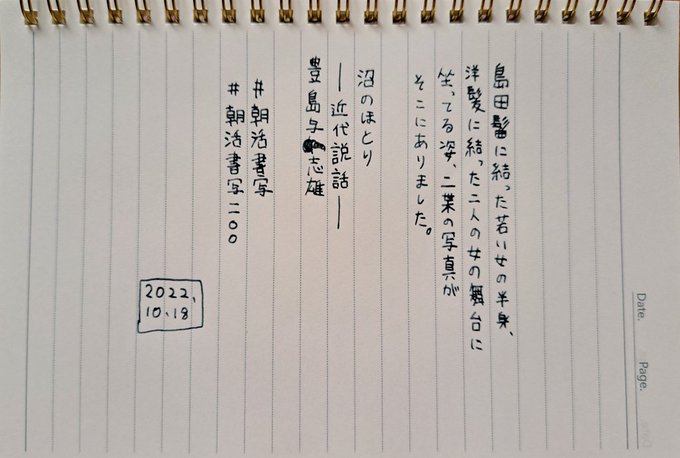 島田髷に結った若い女の半身、
洋髪に結った二人の女の舞台に
坐ってる姿、二葉の写真が
そこにありました。
沼のほとり
―近代説話―
豊島与志雄
#朝活書写
#朝活書写二〇〇
2022.
10.18
Date.
Page.